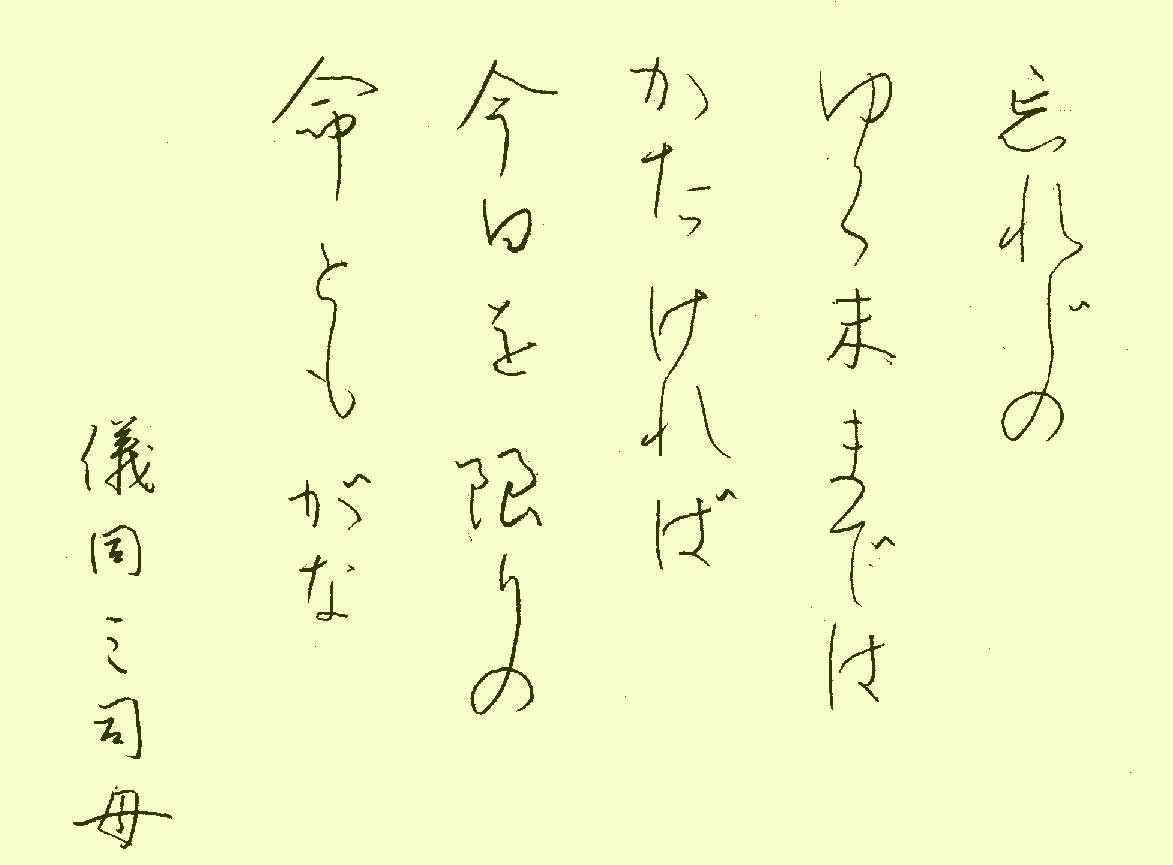 忘れじの
ゆく末までは
かたければ
今日を限りの
命ともがな
儀同三司母